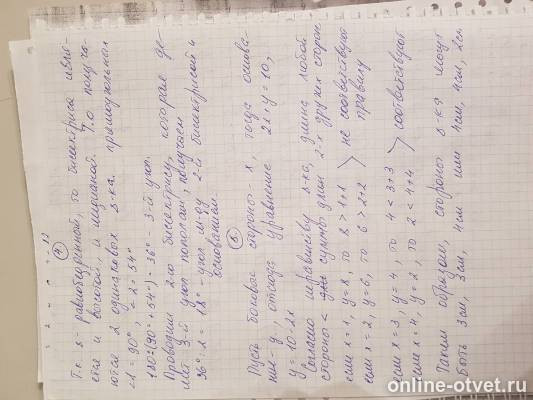 ④
Т.к. δ - равнобедренный, то биссектриса явля-
ется и высотой, и медианой. Т.о. получа-
ются 2 одинаковых δ-ка. прямоугольных
∠1 = 90° ∠2 = 54°
180-(90°+54°) = 36° - 3-й угол.
Проводим 2-ю биссектрису, которая де-
лит 3-й угол пополам, получаем
36°:2 = 18° - угол м-ду 2-й биссектрисой и
основанием.
⑤
Пусть боковая сторона - x, тогда основа-
ние - y, отсюда уравнение 2x+y=10,
y=10-2x
Согласно неравенству δ-ка, длина любой
стороны < суммы длин 2-х других сторон
если x=1, y=8, то 8>1+1
если x=2, y=6, то 6>2+2
не соответствует
правилу
если x=3, y=4, то 4<3+3
если x=4, y=2, то 2<4+4
соответствует
Таким образом, стороны δ-ка могут
быть 3см, 3см, 4см или 4см, 4см, 2см
online-otvet.ru